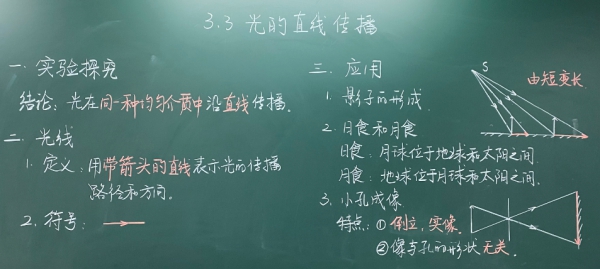 3.3 光的直线传播
一. 实验探究
结论: 光在同一种均匀介质中沿直线传播.
二. 光线
1. 定义: 用带箭头的直线表示光的传播
路径和方向.
2. 符号:
三. 应用
1. 影子的形成.
S
由短变长
2. 月食和月食
日食: 月球位于地球和太阳之间.
月食: 地球位于月球和太阳之间.
3. 小孔成像
特点: ① 倒立, 实像.
② 像与孔的形状无关.